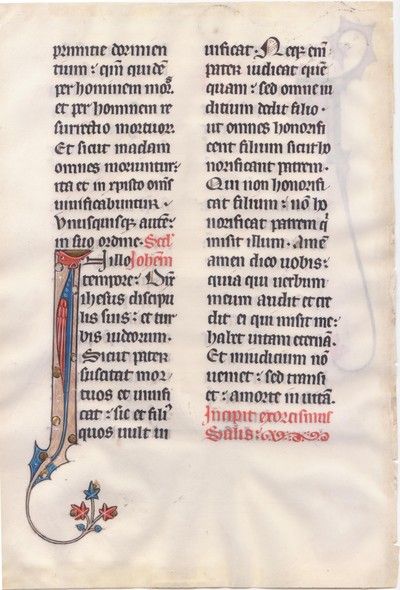 primitie dormien
tium : qm̄ quidē
per hominem mors
et per hominem re
surrectio mortuor.
Et sicut in adam
omnes moriuntur :
ita et in xpisto om̄s
uiuificabuntur.
Vnusquisq; autē :
in suo ordine. Scd'
Johem
In illo
tempore : Dix̄
ihesus discipu
lis suis : et tur
bis iudeorum.
Sicut pater
suscitat mor
tuos et uiuifi
cat : sic et fili9
quos uult ui
uificat. Neq; em̄
pater iudicat quē
quam : sed omne iu
dicium dedit filio.
ut omnes honorifi
cent filium sicut ho
norificant patrem.
Qui non honorifi
cat filium : nō ho
norificat patrem q̄
misit illum. Amē
amen dico uobis :
quia qui uerbum
meum audit et cre
dit ei qui misit me :
habet uitam eternā.
Et in iudicium nō
ueniet : sed transi
et : a morte in uitā.
Incipit exorcismus
Salis :